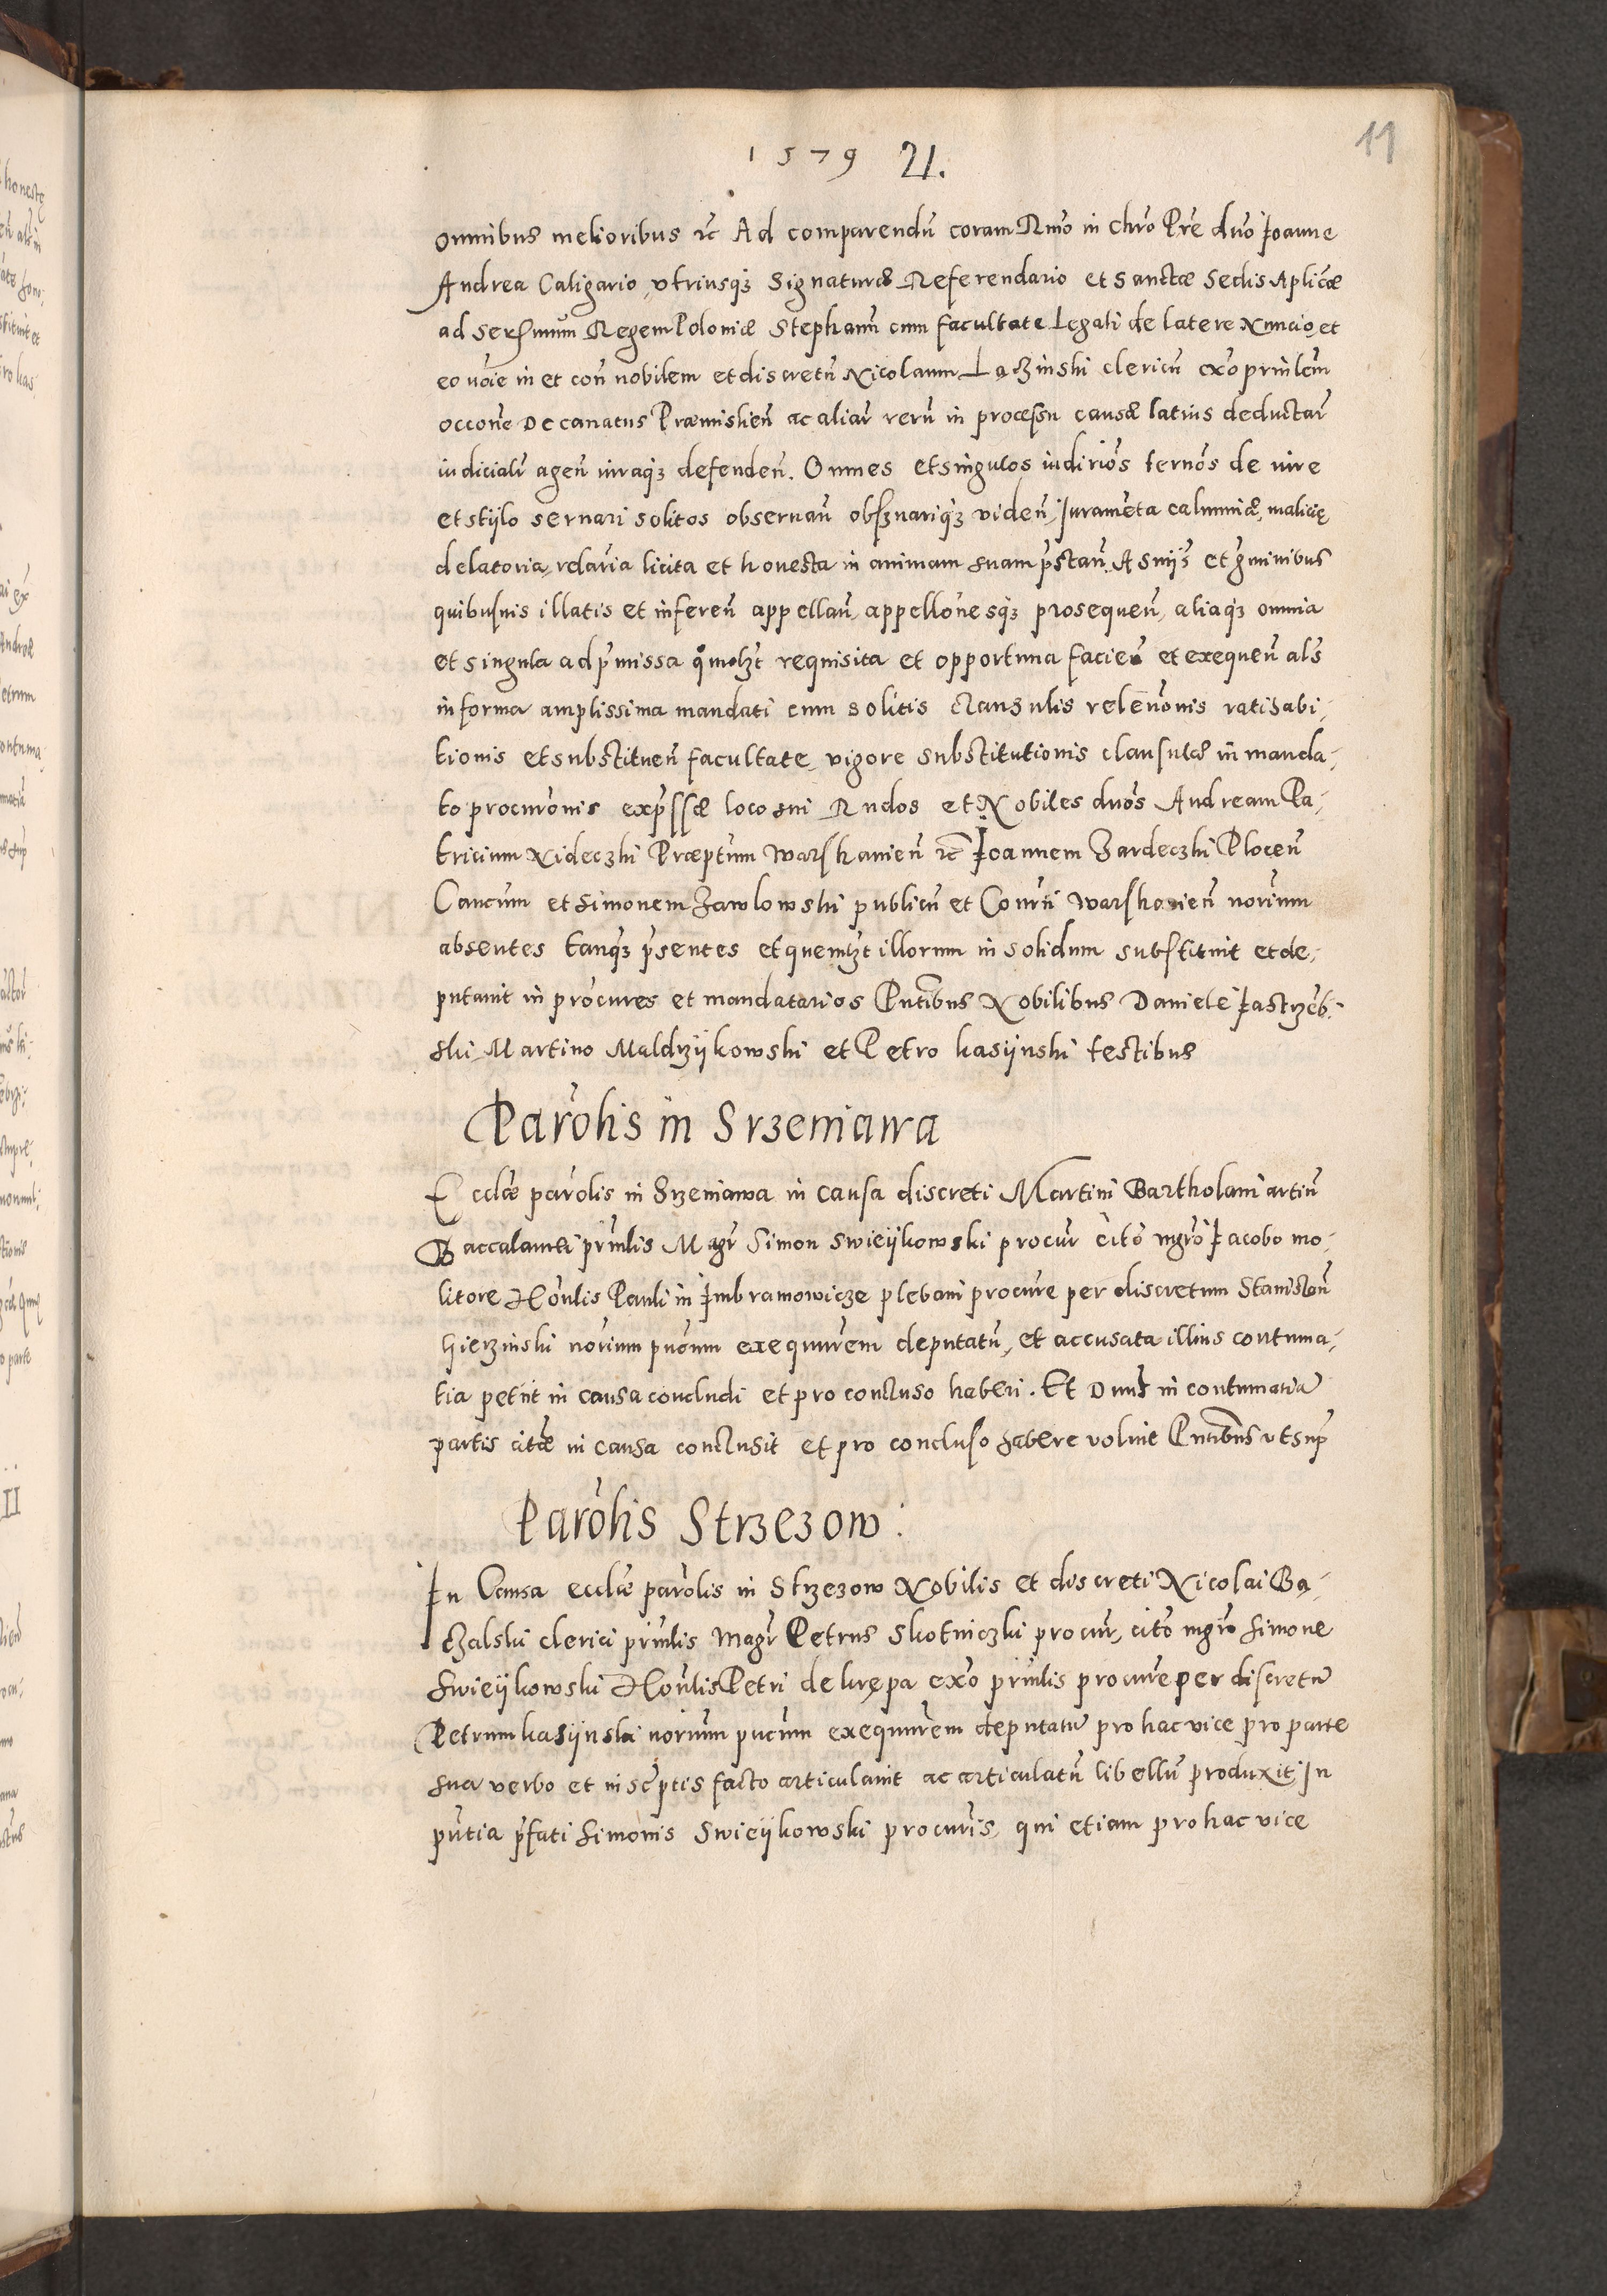 1579 21.
11
omnibus melioribus rc Ad comparendũ coram Rm̃o in Chrõ Prẽ dnõ Joanne
Andrea Caligario, vtriusqʒ Signaturæ Referendario et Sanctæ Sedis Aplicæ
ad Serſmum Regem Poloniæ Stephanũ cum facultate Legati de latere Nuncio, et
eo nõie in et con nobilem et discretũ Nicolaum Ląʒinski clericũ exõ prinlem
occone Decanatus Præmislien̄ ac aliar̄ rerũ in proceſsu causæ latius deductar̄
iudicialr̄ agen̄ iuraqʒ defenden̄. Omnes et singulos iudicios ternos de iure
et stijlo seruari solitos obseruan̄ obſʒuariqʒ viden̄, Iuramẽta calumniæ, malicię
delatoria, rdaria licita et honesta in animam suam pr̃stan̄. A snijs et gminibus
quibusuis illatis et inferen̄ appellan̄, appellonesqʒ prosequen̄, aliaqʒ omnia
et singula ad pr̃missa qmolʒt requisita et opportuna facien̄ et exequen̄ als̃
in forma amplissima mandati cum solitis clausulis releuonis ratihabi,
tionis et substituen̄ facultate, vigore substitutionis clausulæ in manda,
to procurõnis exp̃ſſæ loco sui Rndos et Nobiles dnos Andream Pa,
tricium Nideczki Præptum Warſhauien̄ rc Joannem Zardeczki Plocen̄
Cancũm et Simonem Zawlowski publicũ et Conr̄ii Warſhauien̄ norium
absentes tanqʒ pr̃sentes et quemlʒt illorum in solidum subſtituit et de,
putauit in procures et mandatarios Pntibus Nobilibus Daniele Jastrzẽb,
ski, Martino Maldrzijkowski et Petro kasijnski testibus
Parõlis in Srzeniawa
Ecclæ parõlis in Srzeniawa in causa discreti Martini Bartholani artiũ
Baccalaurei pr̃inlis Magr̃ Simon Swieijkowski procur̄ cito mgr̃o Jacobo mo,
litore Honlis Pauli in Jmbramowicze plebani procure per discretum Stanislaũ
Gierzinski norium pucum exequurem deputatũ, et accusata illius contuma,
tia petiit in causa concludi et pro concluso haberi. Et Dnus in contumatia
partis citæ in causa conclusit et pro concluso habere voluit Pntibus vt sup̃
Parõlis Strzezow.
In Causa ecclæ parõlis in Strzezow Nobilis et discreti Nicolai Bą,
czalski clerici prinlis Magr̃ Petrus Skotniczki procur̄, cito mgr̃o Simone
Swieijkowski Honlis Petri de krępa exõ prinlis procure per discretũ
Petrum kasijnski norium pucum exequurem deputatũ pro hac vice pro parte
sua verbo et in scr̃ptis facto articulauit ac articulatũ libellũ produxit, In
pñtia pr̃fati Simonis Swieijkowski procuris, qui etiam pro hac vice